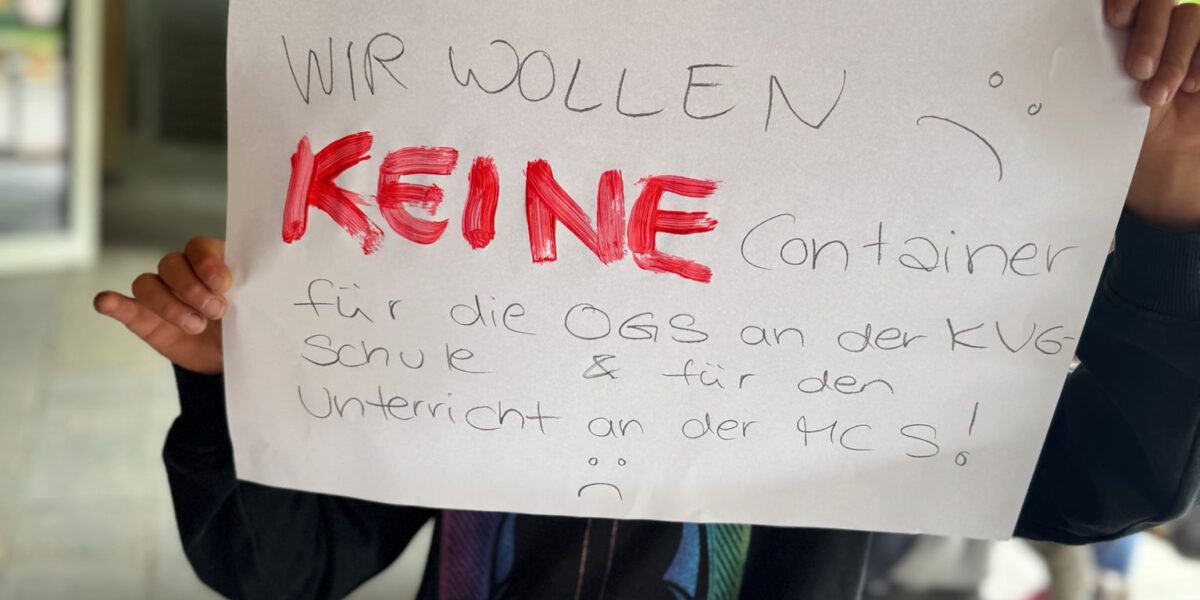 WIR WOLLEN
KEINE Container
für die OGS an der KVG-
Schule & für den
Unterricht an der MCS!